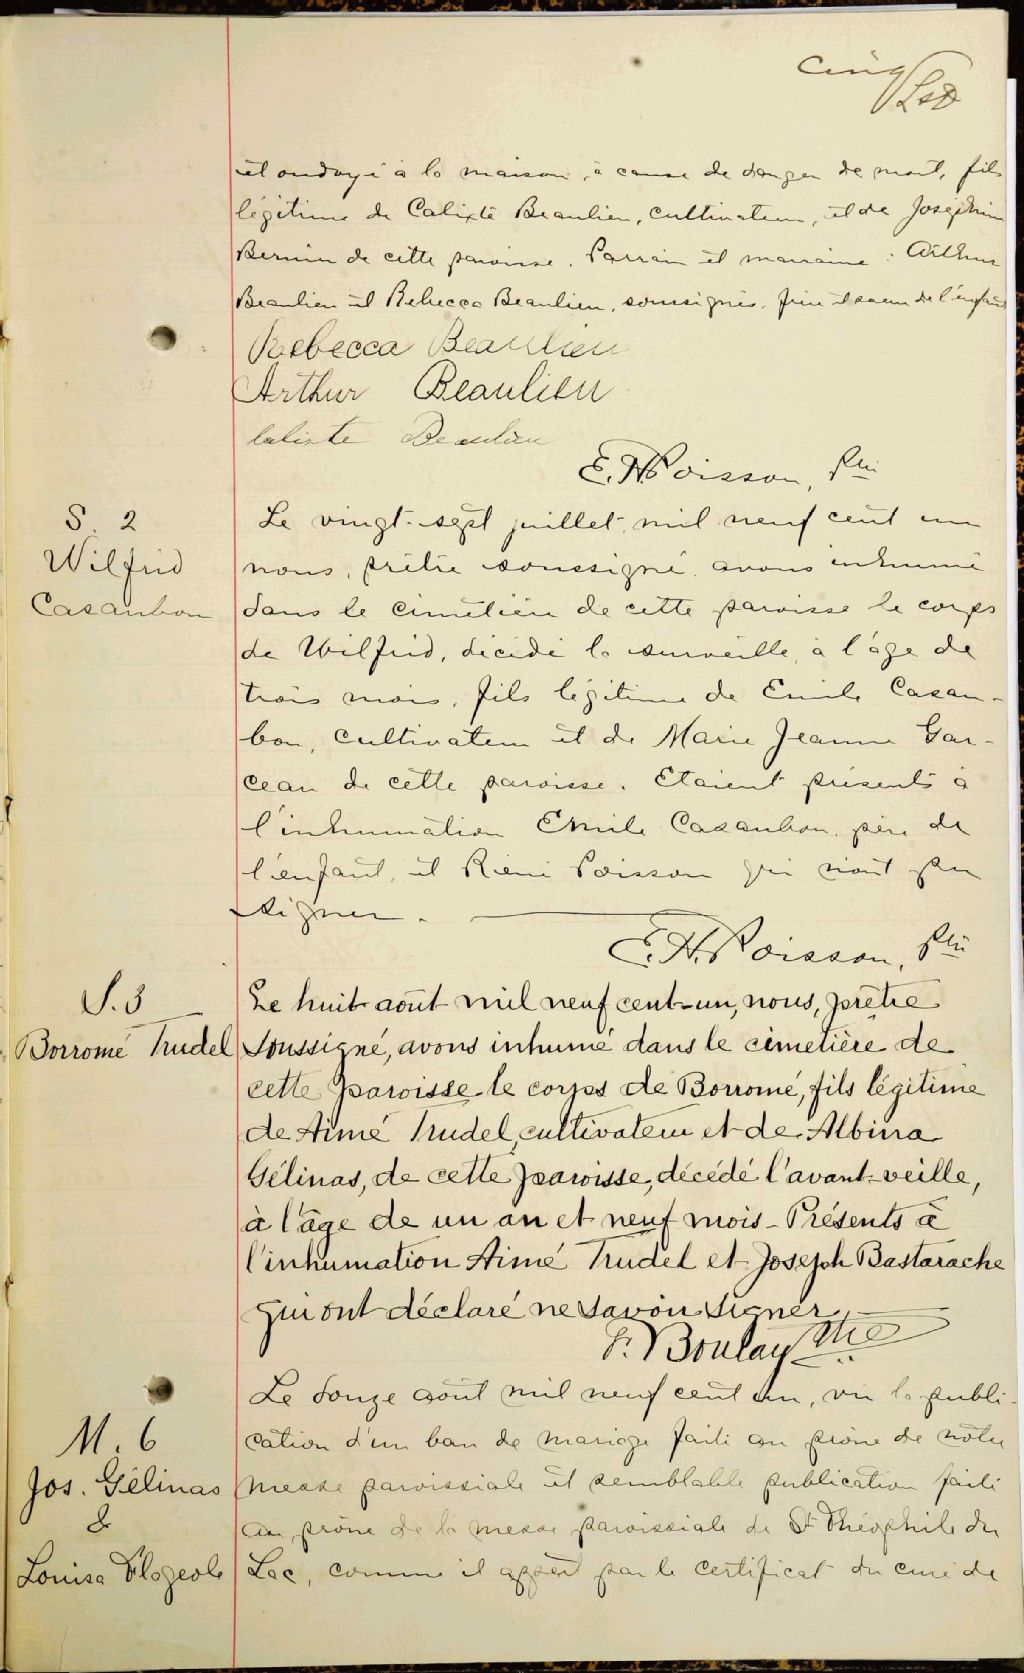 cinq
et ondoyé à la maison, à cause de danger de mort, fils
légitime de Calixte Beaulieu, cultivateur, et de Joséphine
de cette paroisse. Parrain et marraine : Arthur
Beaulieu et Rebecca Beaulieu, soussignés, frère et soeur de l'enfant
Rebecca Beaulieu
Arthur Beaulieu
Calixte Beaulieu
E. H. Poisson, Ptre
S. 2
Wilfrid
Casaubon
Le vingt-sept juillet, mil neuf cent un
nous, prêtre soussigné, avons inhumé
dans le cimetière de cette paroisse le corps
de Wilfrid, décédé la surveille, à l'âge de
trois mois, fils légitime de Emile Casau-
bon, cultivateur et de Marie Jeanne Gar-
ceau de cette paroisse. Etaient présents à
l'inhumation Emile Casaubon, père de
l'enfant, et Rémi Poisson qui n'ont pu
signer.
E. H. Poisson, Ptre
S. 3
Borromé Trudel
Le huit août mil neuf cent-un, nous, prêtre
soussigné, avons inhumé dans le cimetière de
cette paroisse le corps de Borromé, fils légitime
de Aimé Trudel, cultivateur et de Albina
Gélinas, de cette paroisse, décédé l'avant-veille,
à l'âge de un an et neuf mois - Présents à
l'inhumation Aimé Trudel et Joseph Bastarache
qui ont déclaré ne savoir signer
F. Boulay Ptre
M. 6
Jos. Gélinas
&
Louisa Flageole
Le douze août mil neuf cent un, vu la publi-
cation d'un ban de mariage faite au prône de notre
messe paroissiale et semblable publication faite
au prône de la messe paroissiale de St Théophile du
Lac, comme il appert par le certificat du curé de